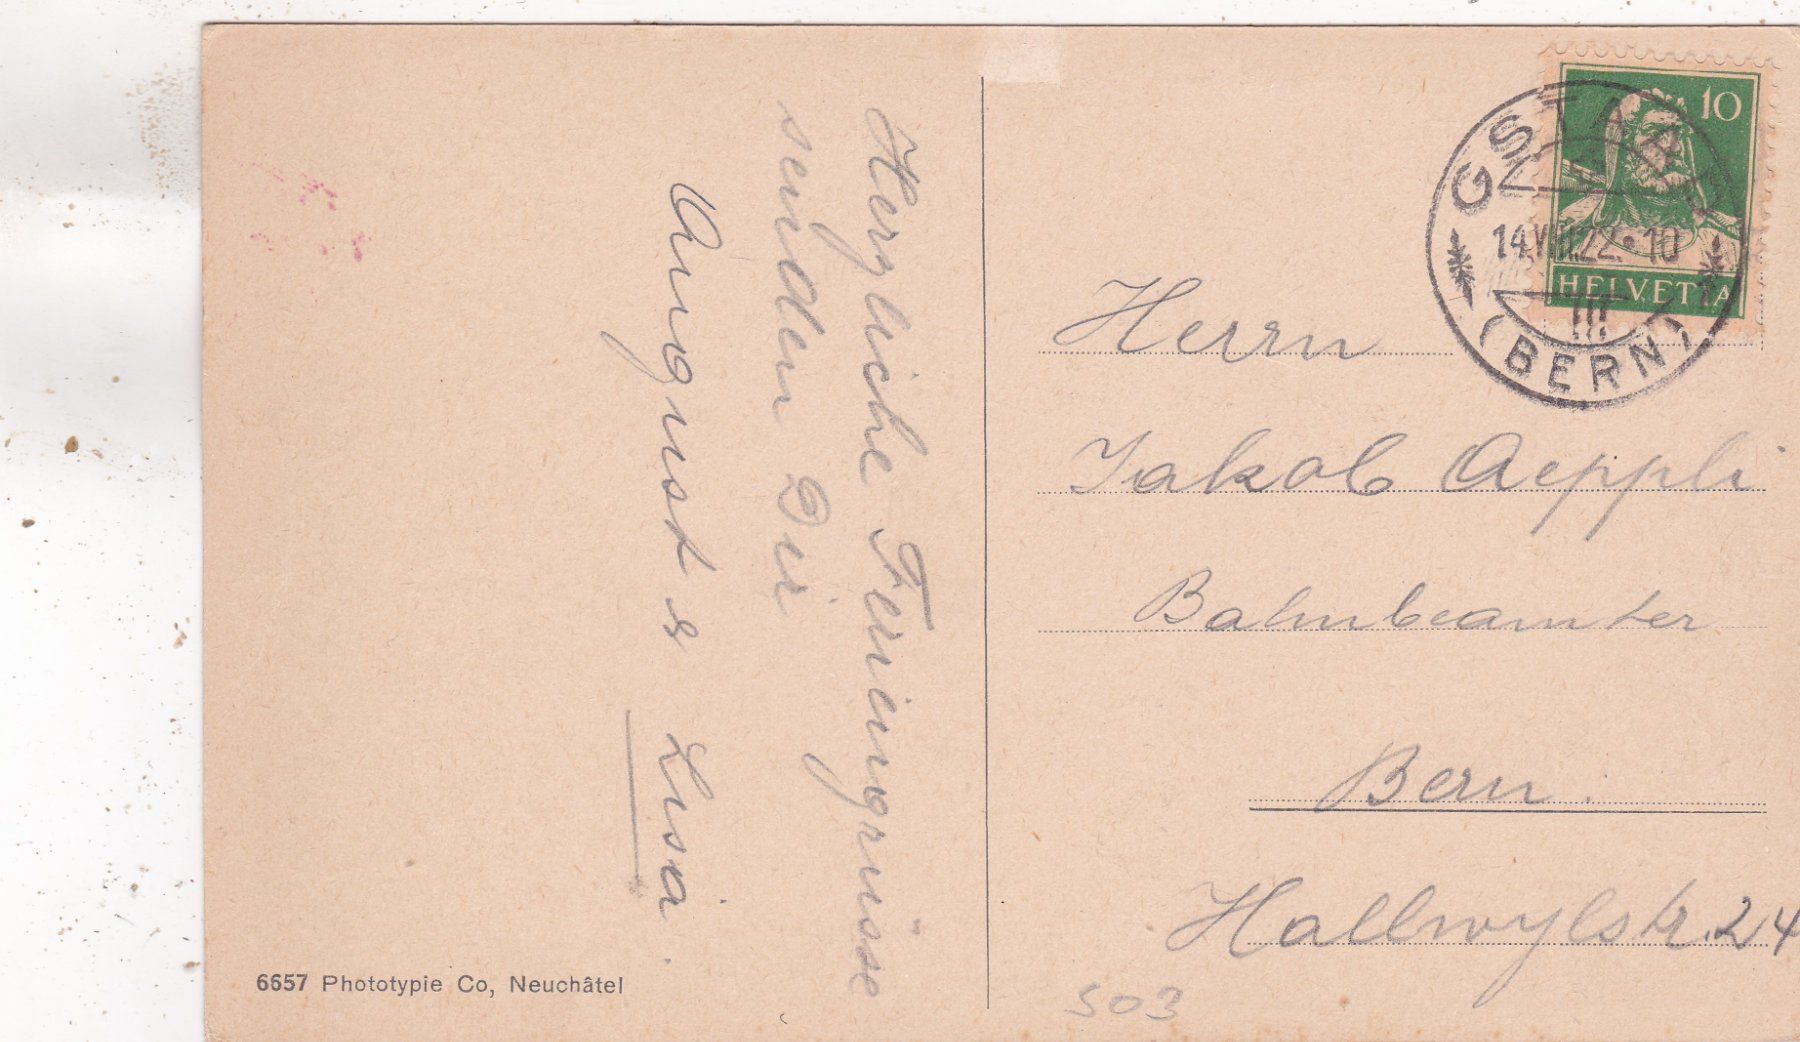 Herzliche Feriengrüsse
senden Dir
August & Lisa.
6657 Phototypie Co, Neuchâtel
10
HELVETIA
GSTAAD
14.VIII.22.10
(BERN)
Herrn
Jakob Aeppli
Bahnbeamter
Bern.
Hallwylstr. 24
503